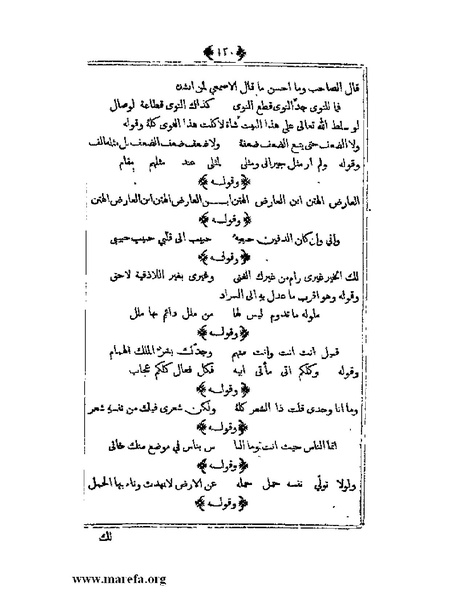 ﴿١٢٠﴾
قال الصاحب وما احسن ما قال الاصمعي لمن انشده
فما للنوى جدّ النوى قطع النوى كذاك النوى قطاعة لوصال
لو سلط الله تعالى على هذا البيت شاة لاكلت هذا النوى كله وقوله
ولا الضعف حتى يتبع الضعف ضعفة ولا ضعف ضعف الضعف بل مثله الف
وقوله ولم ار مثل جيراني ومثلي لمثلي عند مثلهم مقام
﴿وقوله﴾
العارض الهتن ابن العارض الهتن ابــن العارض الهتن ابن العارض الهتن
﴿وقوله﴾
واني وان كان الدفين حبيبه حبيب الى قلبي حبيب حبيبي
﴿وقوله﴾
لك الخير غيري رام من غيرك الغنى وغيري بغير اللاذقية لاحق
وقوله وهو اقرب ما عدل به الى السراد
ملولة ما تدوم ليس لها من ملل دائم بها ملل
﴿وقوله﴾
قبيل انت انت وانت منهم وجدّك بشر الملك الهمام
وقوله وكلكم اتى مأتى ابيه فكل فعال كلكم عجاب
﴿وقوله﴾
وما انا وحدي قلت ذا الشعر كله ولكن شعري فيك من نفسه شعر
﴿وقوله﴾
انما الناس حيث انت وما النا س بناس في موضع منك خالى
﴿وقوله﴾
ولولا تولّي نفسه حمل حمله عن الارض لانهدت وناء بها الحمل
﴿وقوله﴾
لك
www.marefa.org